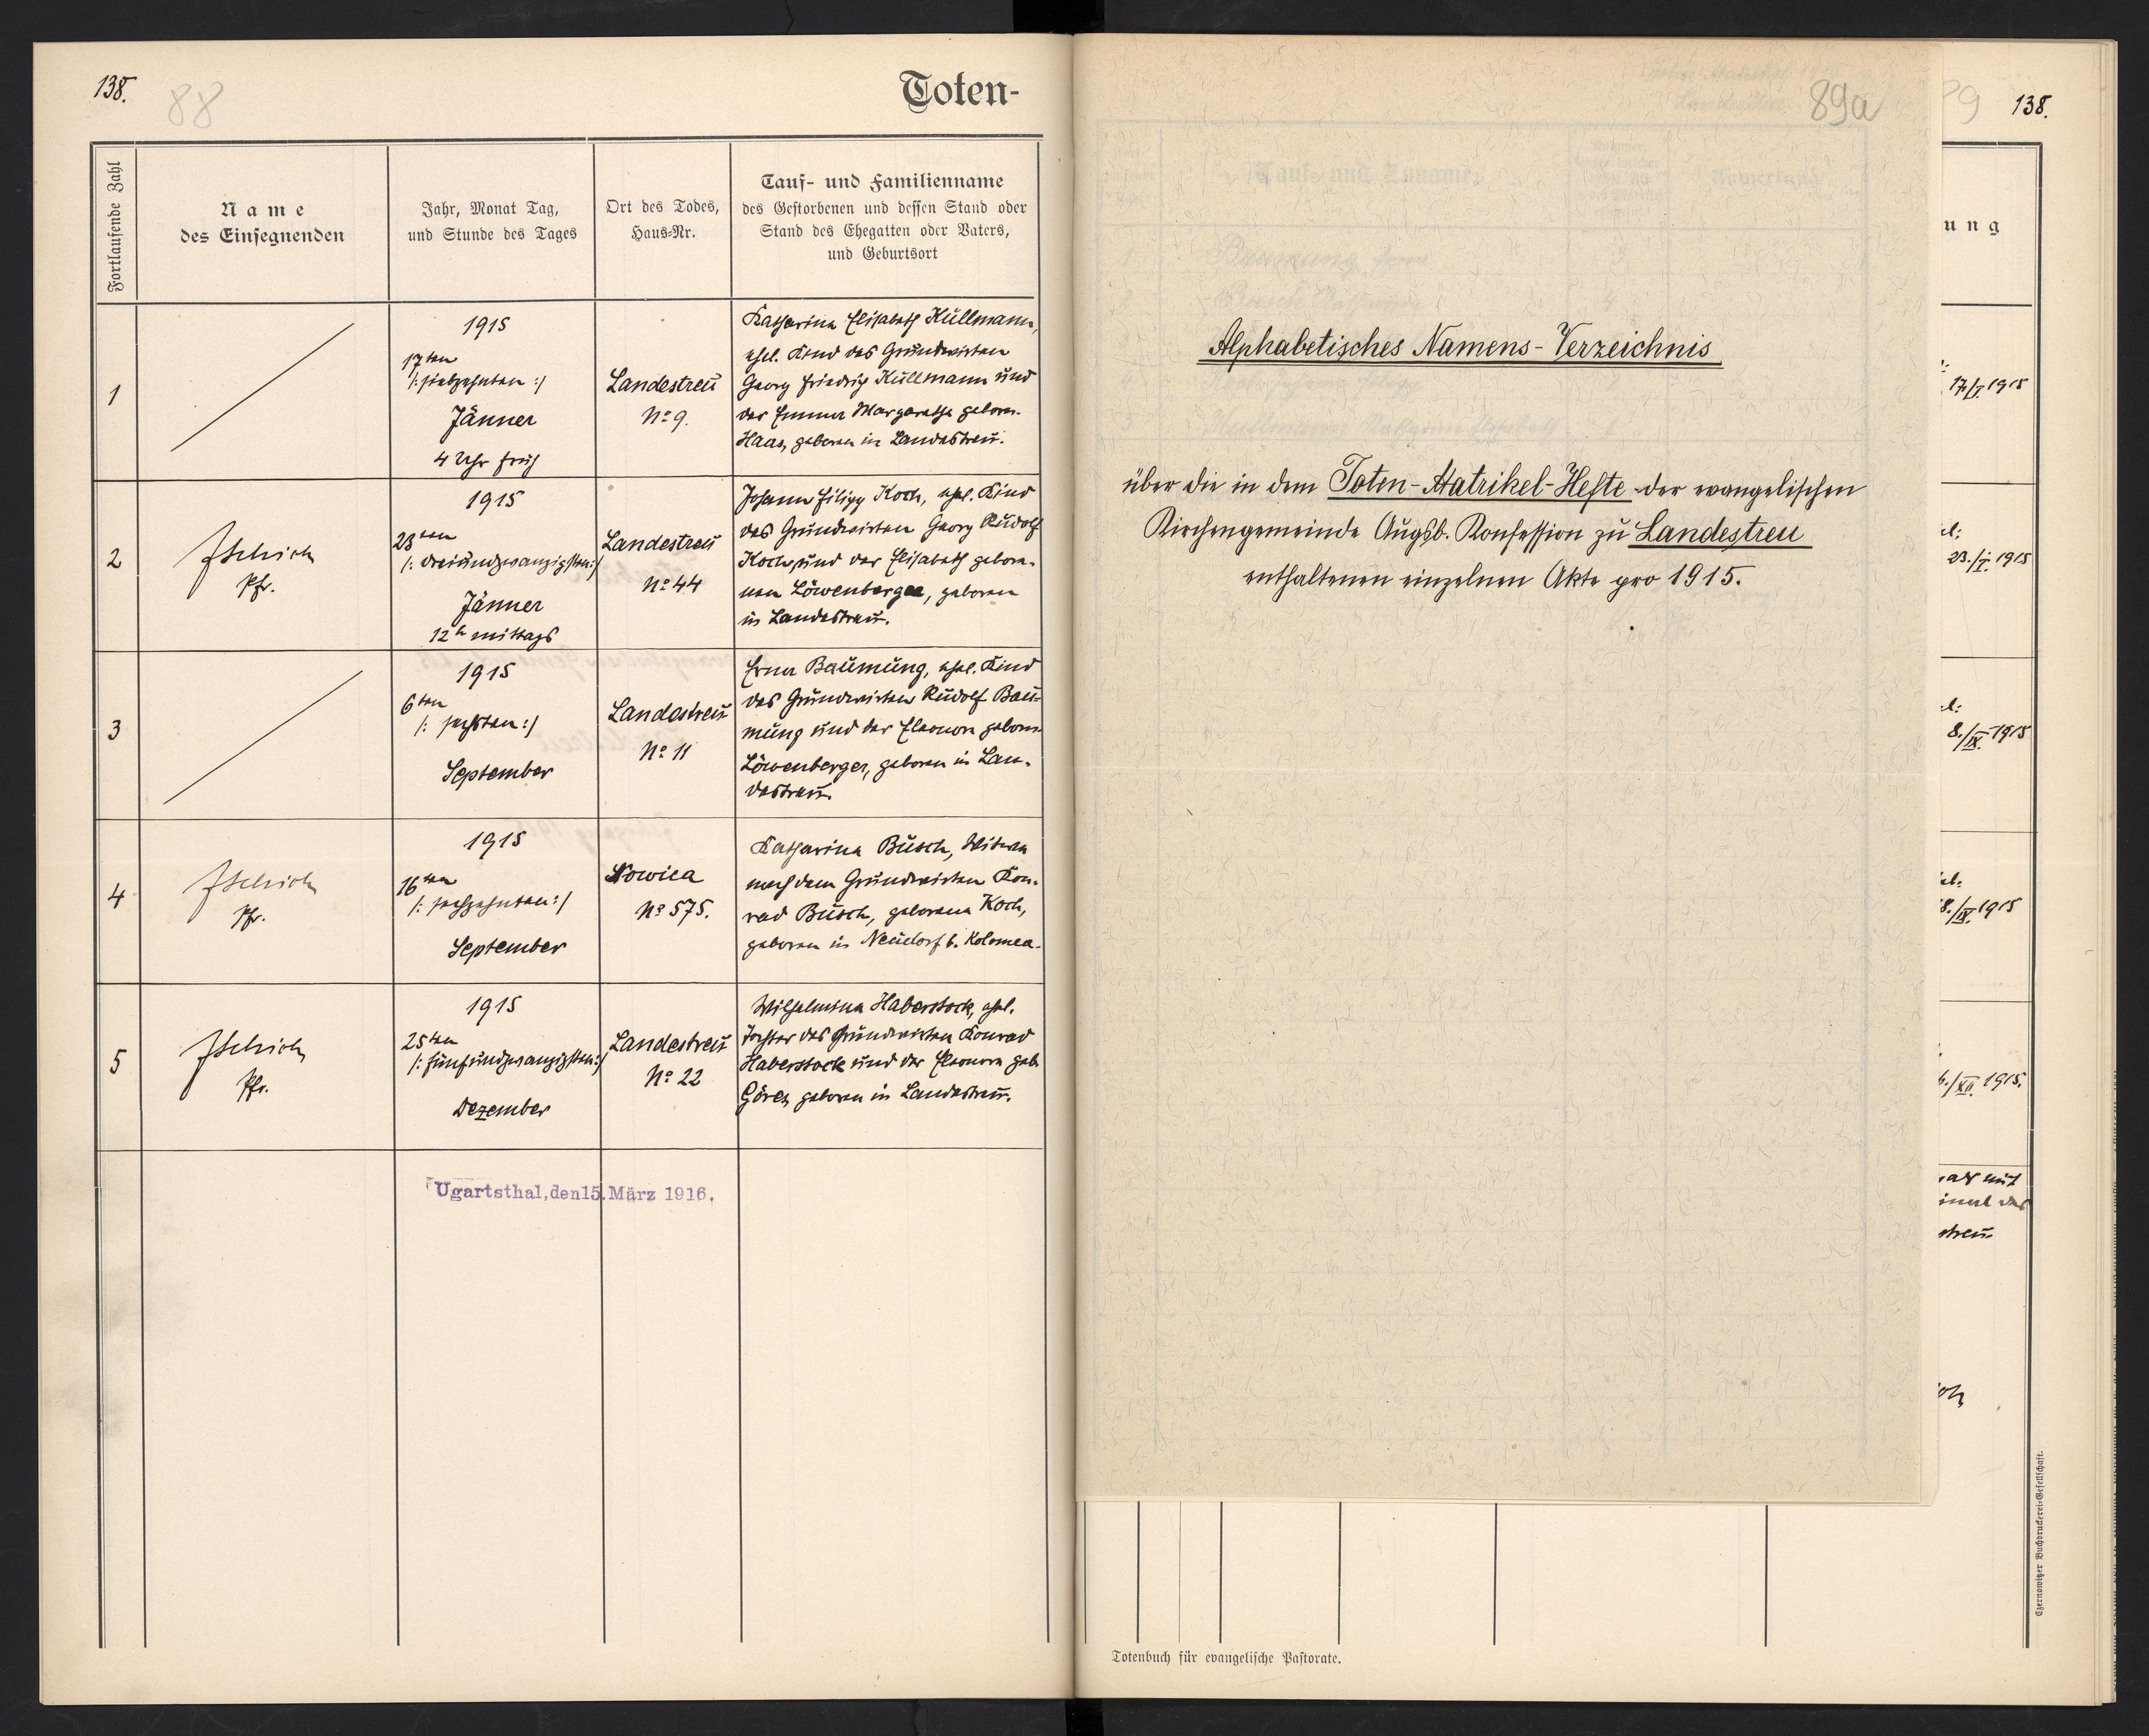 138.
88
Toten-
Fortlaufende Zahl
Name
des Einsegnenden
Jahr, Monat Tag,
und Stunde des Tages
Ort des Todes,
Haus-Nr.
Tauf- und Familienname
des Gestorbenen und dessen Stand oder
Stand des Ehegatten oder Vaters,
und Geburtsort
1
1915
17ten
/: siebzehnten :/
Jänner
4 Uhr früh
Landestreu
No 9.
Katharina Elisabeth Küllmann,
ehel. Kind des Grundwirten
Georg Friedrich Küllmann und
der Emma Margarethe gebore.
Haas, geboren in Landestreu.
2
Pfr.
1915
23ten
/: dreiundzwanzigsten :/
Jänner
12h mittags
Landestreu
No 44
Johann Filipp Koch, ehel. Kind
des Grundwirten Georg Rudolf
Koch, und der Elisabeth gebore-
nen Löwenberger, geboren
in Landestreu.
3
1915
6ten
/: sechsten :/
September
Landestreu
No 11
Erna Baumung, ehel. Kind
des Grundwirten Rudolf Bau-
mung und der Eleonora geboren
Löwenberger, geboren in Lan-
destreu.
4
Pfr.
1915
16ten
/: sechzehnten :/
September
Nowica
No 575.
Katharina Busch, Witwe
nach dem Grundwirten Kon-
rad Busch, geborene Koch,
geboren in Neudorf b. Kolomea.
5
Pfr.
1915
25ten
/: fünfundzwanzigsten :/
Dezember
Landestreu
No 22
Wilhelmina Haberstock, ehel.
Tochter des Grundwirten Konrad
Haberstock und der Eleonora geb.
geboren in Landestreu.
Ugartsthal, den 15. März 1916.
89a
Alphabetisches Namens-Verzeichnis
über die in dem Toten-Matrikel-Hefte der evangelischen
Kirchengemeinde Augsb. Konfession zu Landestreu
enthaltenen einzelnen Akte pro 1915.
89
138.
ung
17/I. 1915
23./I. 1915
8./IX. 1915
8./IX. 1915
6./XII. 1915.
Totenbuch für evangelische Pastorate.
Czernowitzer Buchdruckerei-Gesellschaft.